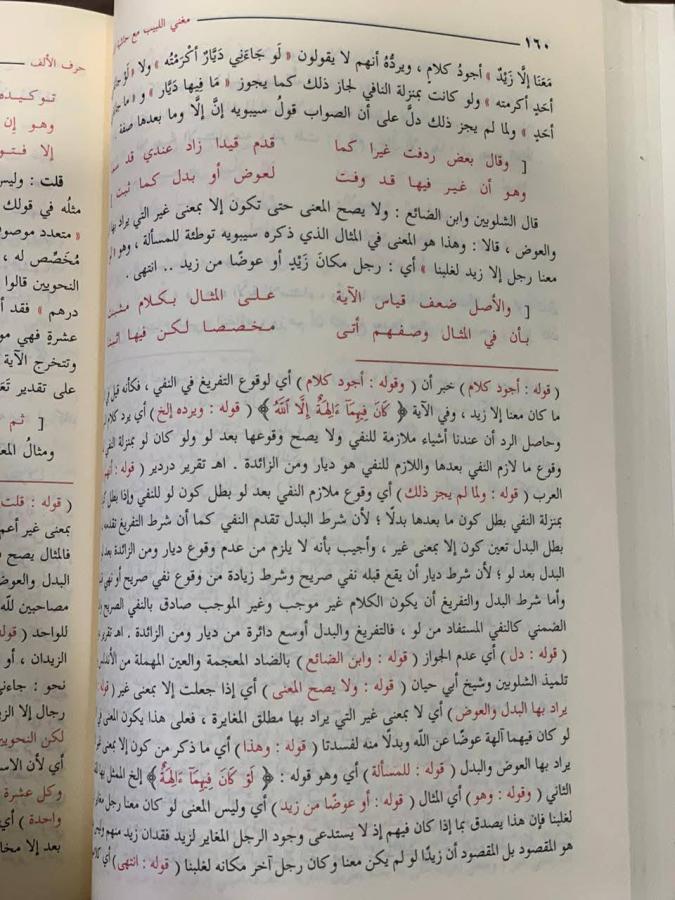 ١٦٠
مغني اللبيب مع حاشية
مَعَنَا إلَّا زَيْدٌ » أجودُ كلامٍ ، ويردُّهُ أنهم لا يقولون « لَو جَاءَني دَيَّارٌ أكرَمْتُه » ولا « لَو
أحدٍ أكرمته » ولو كانت بمنزلة النافي لجاز ذلك كما يجوز « مَا فِيها دَيَّار » و « ما
أحدٍ » ولما لم يجز ذلك دلَّ على أن الصواب قولُ سيبويه إنَّ إلَّا وما بعدها صفة .
[ وقال بعض ردفت غيرا كما قدم قيدا زاد عندي قد
وهو أن غير فيها قد وفت لعوض أو بدل كما ثبت ]
قال الشلوبين وابن الضائع : ولا يصح المعنى حتى تكون إلا بمعنى غير التي يراد بها
والعوض ، قالا : وهذا هو المعنى في المثال الذي ذكره سيبويه توطئة للمسألة ، وهو
معنا رجل إلا زيد لغلبنا » أي : رجل مكانَ زَيْدٍ أو عوضًا من زيد .. انتهى .
[ والأصل ضعف قياس الآية على المثال بكلام
بأن في المثال وصفهم أتى مخصصا لكن فيها
( قوله : أجود كلام ) خبر أن ( وقوله : أجود كلام ) أي لوقوع التفريغ في النفي ، فكأنه قيل في
ما كان معنا إلا زيد ، وفي الآية ﴿ كَانَ فِيهِمَآ ءَالِهَةٌ إِلَّا ٱللَّهُ ﴾ ( قوله : ويرده إلخ ) أي يرد كلام
وحاصل الرد أن عندنا أشياء ملازمة للنفي ولا يصح وقوعها بعد لو ولو كان لو بمنزلة النفي
وقوع ما لازم النفي بعدها واللازم للنفي هو ديار ومن الزائدة . اهـ تقرير دردير ( قوله :
العرب ( قوله : ولما لم يجز ذلك ) أي وقوع ملازم النفي بعد لو بطل كون لو للنفي وإذا بطل
بمنزلة النفي بطل كون ما بعدها بدلًا ؛ لأن شرط البدل تقدم النفي كما أن شرط التفريغ تقدمه
بطل البدل تعين كون إلا بمعنى غير ، وأجيب بأنه لا يلزم من عدم وقوع ديار ومن الزائدة بعد
البدل بعد لو ؛ لأن شرط ديار أن يقع قبله نفي صريح وشرط زيادة من وقوع نفي صريح أو نهي
وأما شرط البدل والتفريغ أن يكون الكلام غير موجب وغير الموجب صادق بالنفي الصريح
الضمني كالنفي المستفاد من لو ، فالتفريغ والبدل أوسع دائرة من ديار ومن الزائدة . اهـ تقرير
( قوله : دل ) أي عدم الجواز ( قوله : وابن الضائع ) بالضاد المعجمة والعين المهملة من
تلميذ الشلوبين وشيخ أبي حيان ( قوله : ولا يصح المعنى ) أي إذا جعلت إلا بمعنى غير (
يراد بها البدل والعوض ) أي لا بمعنى غير التي يراد بها مطلق المغايرة ، فعلى هذا يكون المعنى في
لو كان فيهما آلهة عوضًا عن اللَّه وبدلًا منه لفسدتا ( قوله : وهذا ) أي ما ذكر من كون إلا بمعنى غير
يراد بها العوض والبدل ( قوله : للمسألة ) أي وهو قوله : ﴿ لَوْ كَانَ فِيهِمَآ ءَالِهَةٌ ﴾ إلخ الممثل بها
الثاني ( وقوله : وهو ) أي المثال ( قوله : أو عوضًا من زيد ) أي وليس المعنى لو كان معنا رجل
لغلبنا فإن هذا يصدق بما إذا كان فيهم إذ لا يستدعى وجود الرجل المغاير لزيد فقدان زيد منهم
هو المقصود بل المقصود أن زيدًا لو لم يكن معنا وكان رجل آخر مكانه لغلبنا ( قوله : انتهى ) أي
حرف الألف
وهو إن
قلت : وليس
مثلُه في قولك
« متعدد موصوف
مُخَصِّص له ،
النحويين قالوا
درهم » فقد
عشرةٍ فهي
وتتخرج الآية
على تقدير
[ ثم
ومثالُ
( قوله : قلت
بمعنى غير أعم
فالمثال يصح
البدل والعوض
مصاحبين للَّه
للواحد ( قوله
الزيدان ، أو
نحو : جاءني
رجال إلا
لكن النحويين
أي لأن
وكل عشرة
واحدة ) أي
بعد إلا